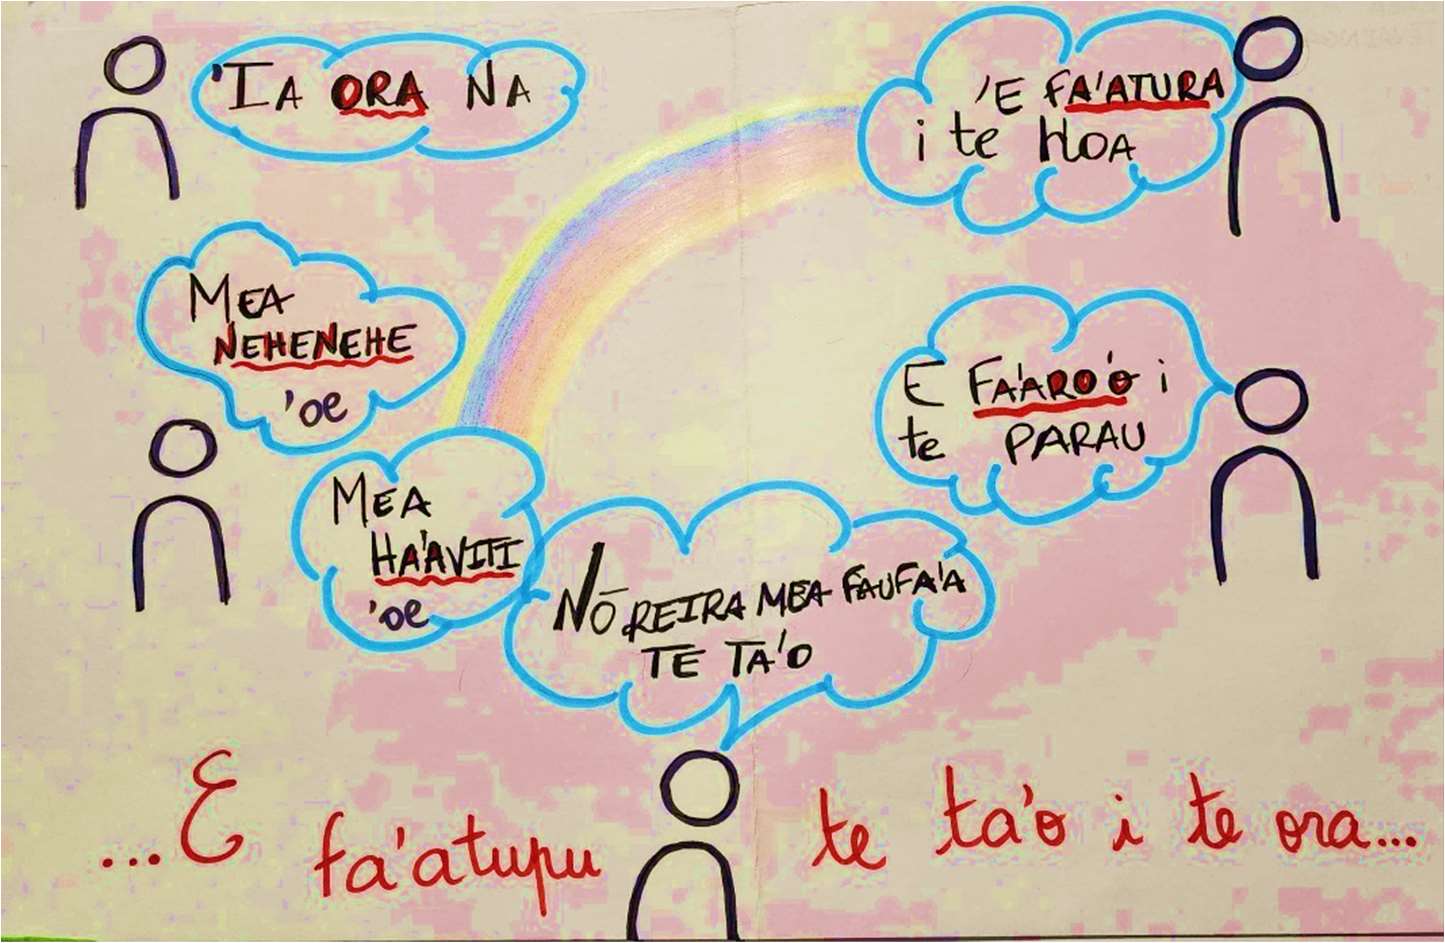 'IA ORA NA
'E FA'ATURA
i te HOA
MEA
NEHENEHE
'oe
E FA'ARO'O i
te PARAU
MEA
HA'AVITI
'oe
NŌ REIRA MEA FAUFA'A
TE TA'O
...E fa'atupu te ta'o i te ora...